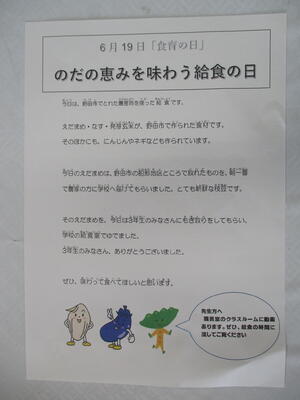 6月19日「食育の日」
のだの恵みを味わう給食の日
今日は、野田市でとれた農産物を使った給食です。
えだまめ・なす・発芽玄米が、野田市で作られた食材です。
そのほかにも、にんじんやネギなども作られています。
今日のえだまめは、野田市の船形地区ところで取れたものを、朝一番
で農家の方に学校へ届けてもらいました。とても新鮮な枝豆です。
そのえだまめを、今日は3年生のみなさんにもぎ取りをしてもらい、
学校の給食室でゆでました。
3年生のみなさん、ありがとうございました。
ぜひ、味わって食べてほしいと思います。
先生方へ
職員室のクラスルームに動画
あります。ぜひ、給食の時間に
流してご覧ください